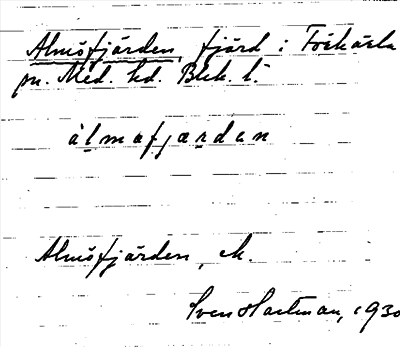 Almöfjärden, fjärd i Förkärla
sn. Med. hd. Blek. l.
àlmafjærdən
Almöfjärden, ek.
Sven Hartman, 1930